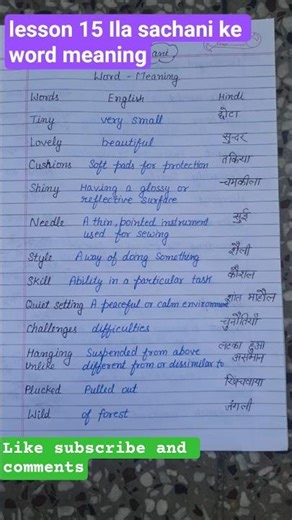 lesson 15 Ila sachani ke
word meaning
Word - Meaning
Words English Hindi
Tiny very small छोटा
Lovely beautiful सुन्दर
Cushions Soft pads for protection तकिया
Shiny Having a glossy or चमकीला
reflective surface
Needle A thin, pointed instrument सुई
used for sewing
Style A way of doing something शैली
Skill Ability in a particular task कौशल
Quiet setting A peaceful or calm environment शांत माहौल
Challenges difficulties चुनौतियाँ
Hanging Suspended from above लटका हुआ
Unlike different from or dissimilar to असमान
Plucked Pulled out
Wild of forest जंगली
Like subscribe and
comments